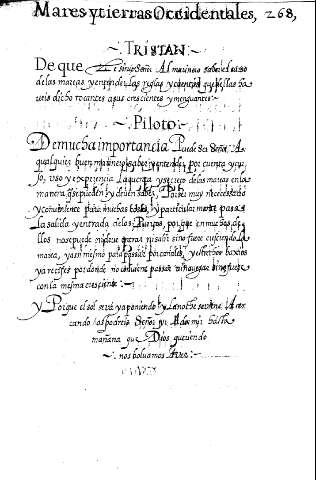 Mares y tierras Occidentales, 268,
TRISTAN
De que sirve Señor Al marinero saber el caso
de las mareas y entender las reglas y cuentas que dellas ha
veis dicho tocantes a sus crescientes y menguantes
Piloto
De mucha importancia Puede ser Señor, A
qualquier buen marinero saber y entender por cuenta y
uso y experiencia la cuenta y secreto de las mareas en la
manera que se pueden y deven saber, Por ser muy necessario
y conveniente para muchas cosas, y particular mente para
la salida y entrada de los Puertos, porque en muchos de
llos no se puede entrar ni salir sino fuere cresciendo la
marea, y assi mismo para passar por canales, y estrechos baxios
y arrecifes por donde no conviene passar sino fuere
con la mesma cresciente
Y Porque el sol se va ya poniendo y La noche se viene A
cando os podreis Señor yr A dormir hasta
mañana que Dios queriendo
nos bolvamos A ver